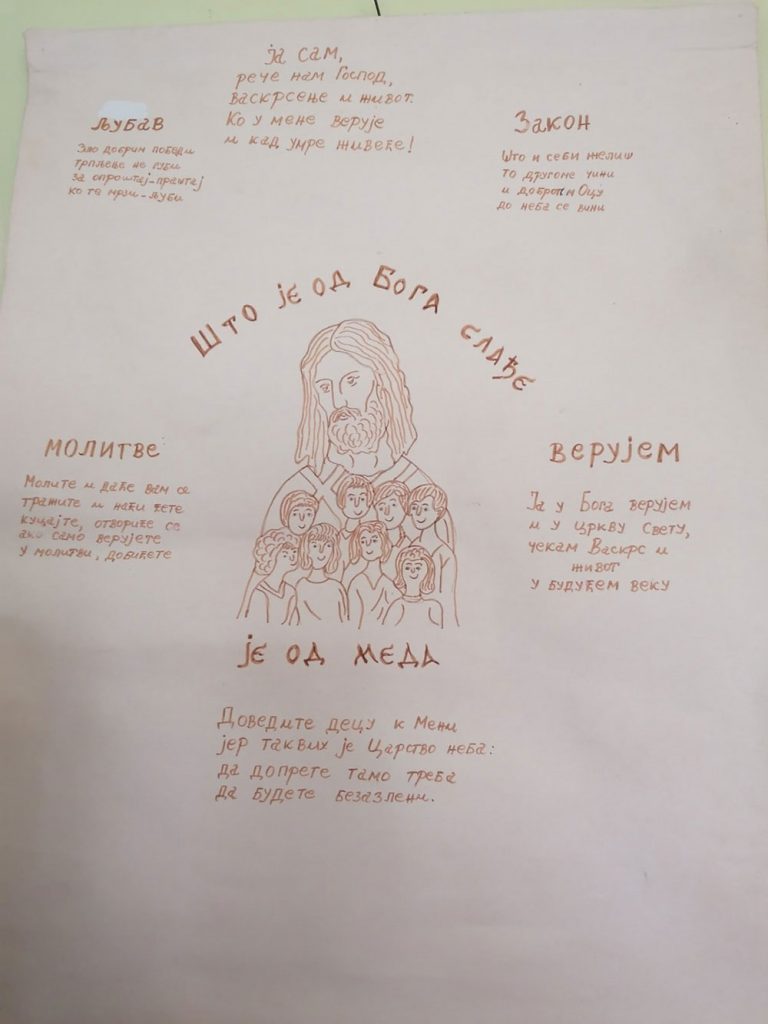 Ја сам,
рече нам Господ,
васкрсење и живот.
Ко у мене верује
и кад умре живеће!
Љубав
Зло добрим победи
трпљење не губи
за опроштај-праштај
ко те мрзи-љуби
Закон
Што и себи желиш
то другоме чини
и добротом Оцу
до неба се вини
Што је од Бога слађе
Молитве
Молите и даће вам се
тражите и наћи ћете
куцајте, отвориће се
ако само верујете
у молитви, добићете
Верујем
Ја у Бога верујем
и у цркву свету,
чекам Васкрс и
живот
у будућем веку
је од меда
Доведите децу к Мени
јер таквих је Царство неба:
да допрете тамо треба
да будете безазлени.